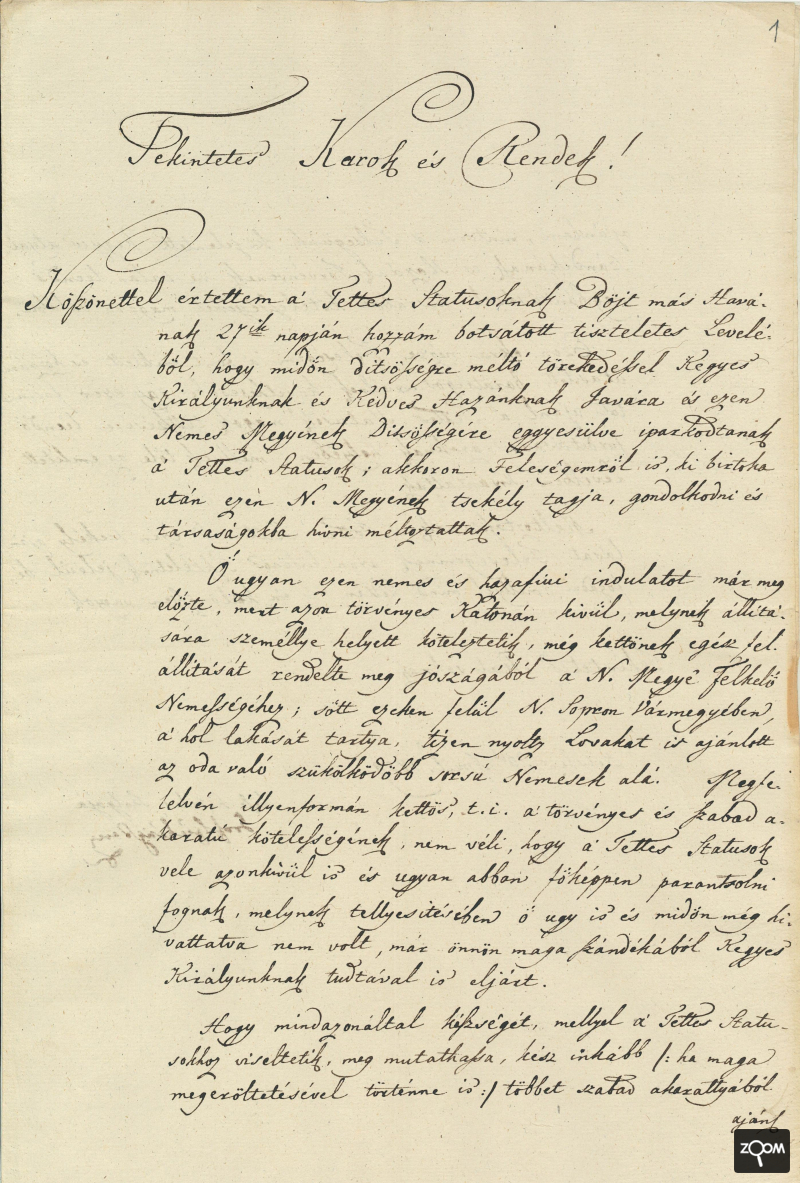 1
Tekintetes Karok és Rendek!
Köszönettel értettem a' Tettes Statusoknak Böjt más Hava-
nak 27ik napján hozzám botsátott tiszteletes Levelé-
ből, hogy midőn ditsösségre méltó törekedéssel Kegyes
Királyunknak és Kedves Hazánknak Javára és ezen
Nemes Megyének Ditsösségére eggyesülve iparkodtanak
á Tettes Statusok; akkoron Feleségemről is, ki birtoka
után ezen N. Megyének tsekély tagja, gondolkodni és
társaságokba hivni méltoztattak.
Ő ugyan ezen nemes és hazafiui indulatot már meg
előzte, mert azon törvényes Katonán kivül, melynek állitá-
sára személlye helyett köteleztetik, még kettőnek egész fel-
állitását rendelte meg jószágából á N. Megye Felkelő
Nemességéhez; sőtt ezeken felül N. Sopron Vármegyében,
a' hol lakását tartya, tizen nyoltz Lovakat is ajánlott
az oda való szükölködőbb sorsú Nemesek alá. Megfe-
lelvén illyenformán kettős, t. i. a' törvényes és szabad a-
karatú kötelességének, nem véli, hogy á Tettes Statusok
vele azonkivül is és ugyan abban főképpen parantsolni
fognak, melynek tellyesitésében ő ugy is és midőn még hi-
vattatva nem volt, már önnön maga szándékából Kegyes
Királyunknak tudtával is eljárt.
Hogy mindazonáltal készségét, mellyel á Tettes Statu-
sokhoz viseltetik, meg mutathassa, kész inkább /: ha maga
megeröltetésével történne is :/ többet szabad akarattyából
ajánl
ZOOM